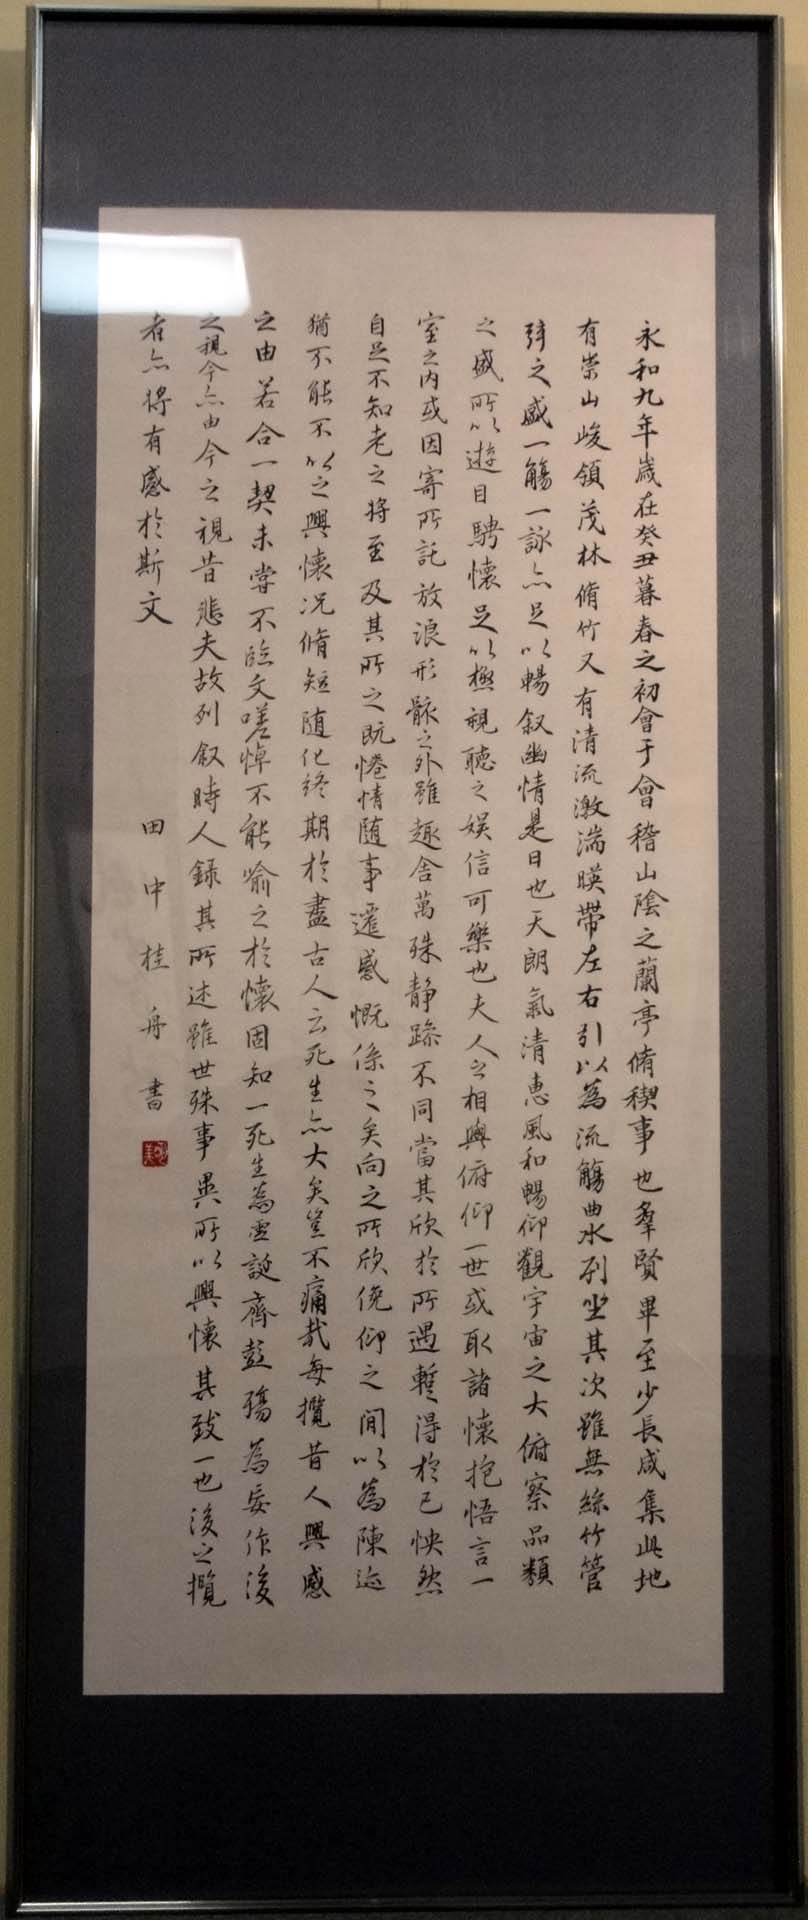 永和九年歳在癸丑暮春之初會于會稽山陰之蘭亭脩稧事也羣賢畢至少長咸集此地
有崇山峻領茂林脩竹又有清流激湍暎帶左右引以為流觴曲水列坐其次雖無絲竹管
弦之盛一觴一詠亦足以暢叙幽情是日也天朗氣清恵風和暢仰觀宇宙之大俯察品類
之盛所以遊目騁懐足以極視聴之娯信可樂也夫人之相與俯仰一世或取諸懐抱悟言一
室之内或因寄所託放浪形骸之外雖趣舎萬殊静躁不同當其欣於所遇蹔得於己怏然
自足不知老之将至及其所之既惓情随事遷感慨係之矣向之所欣俛仰之閒以為陳迹
猶不能不以之興懐况脩短随化終期於盡古人云死生亦大矣豈不痛哉每攬昔人興感
之由若合一契未甞不臨文嗟悼不能喻之於懐固知一死生為虚誕齊彭殤為妄作後
之視今亦由今之視昔悲夫故列叙時人録其所述雖世殊事異所以興懐其致一也後之攬
者亦将有感於斯文　田中桂舟書